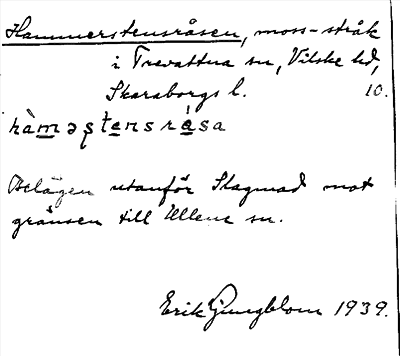 Hammerstensråsen, moss-stråk
i Trevattna sn, Vilske hd,
Skaraborgs l. 10.
hàməştensråsa
Belägen utanför Slagmad mot
gränsen till Ullene sn.
Erik Ljungblom 1939.